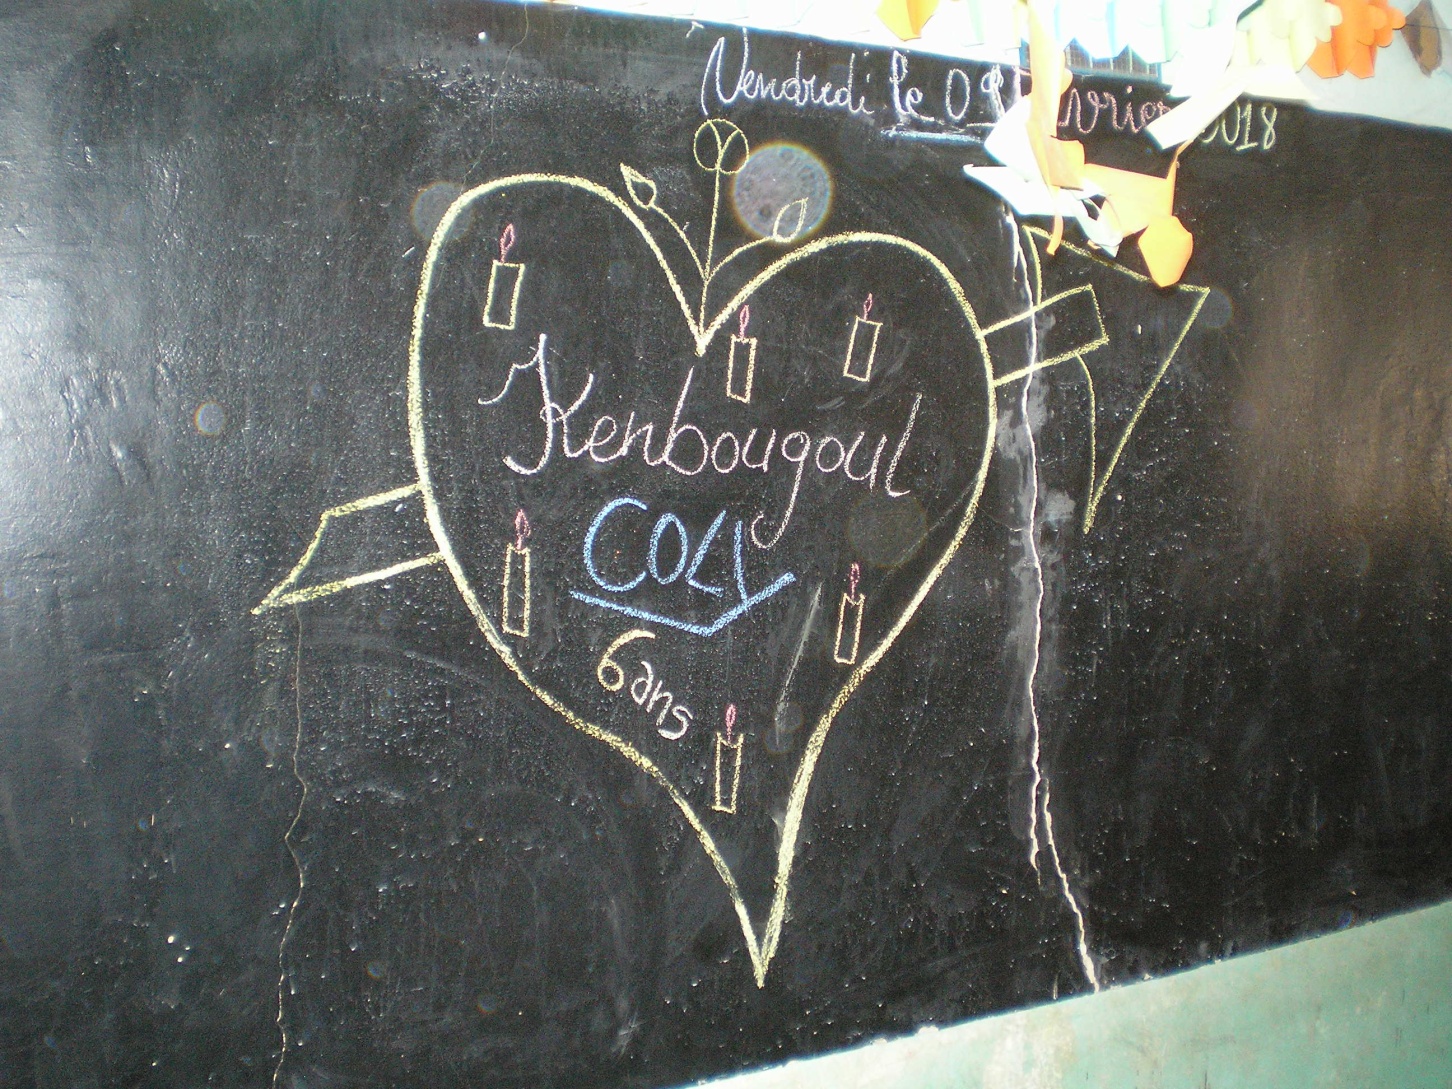 Vendredi le 09 Février 2018
Kenbougoul
COLY
6 ans